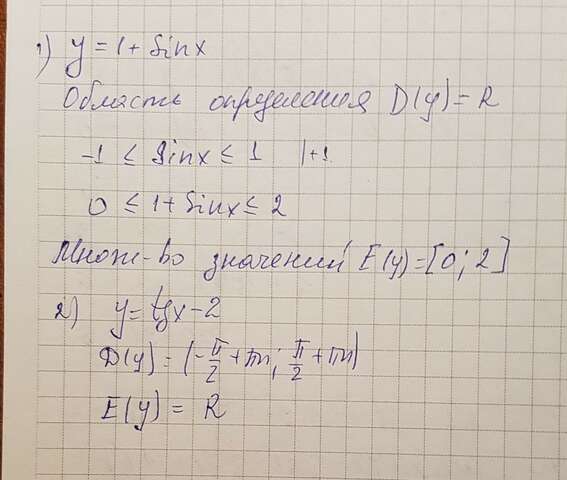 1) y = 1 + sin x
Область определения D(y) = R
-1 ≤ sin x ≤ 1 |+1
0 ≤ 1 + sin x ≤ 2
Множ-во значений E(y) = [0; 2]
2) y = tg x - 2
D(y) = (-π/2 + πn; π/2 + πn)
E(y) = R